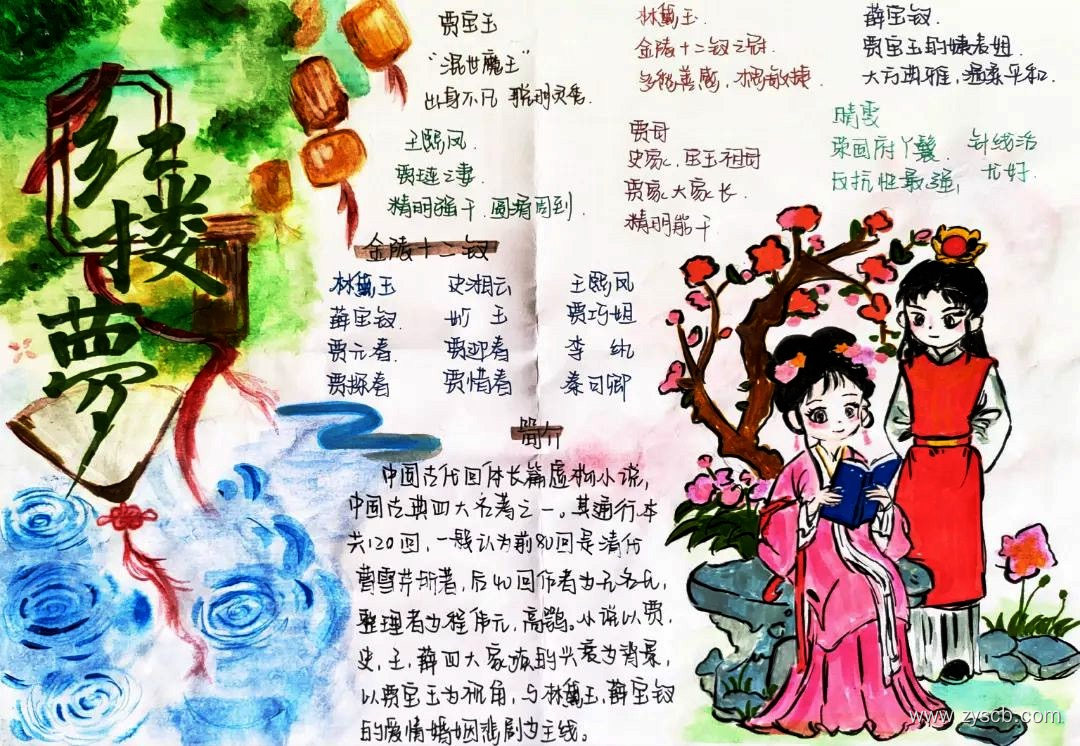 红楼梦
贾宝玉
“混世魔王”
出身不凡 聪明灵秀.
王熙凤.
贾琏之妻.
精明强干. 圆滑周到.
林黛玉.
金陵十二钗之冠.
多愁善感, 才思敏捷.
贾母
史家, 宝玉祖母
贾家大家长.
精明能干
薛宝钗.
贾宝玉的姨表姐.
大方典雅, 温柔平和.
晴雯
荣国府丫鬟. 针线活
反抗性最强, 尤好.
金陵十二钗
林黛玉 史湘云 王熙凤
薛宝钗. 妙 玉 贾巧姐
贾元春. 贾迎春 李 纨
贾探春 贾惜春 秦可卿
简介
中国古代回体长篇虚构小说,
中国古典四大名著之一。其通行本
共120回, 一般认为前80回是清代
曹雪芹所著, 后40回作者为无名氏,
整理者为程伟元, 高鹗。小说以贾,
史, 王, 薛四大家族的兴衰为背景,
以贾宝玉为视角, 与林黛玉, 薛宝钗
的爱情婚姻悲剧为主线。
www.zyscb.com